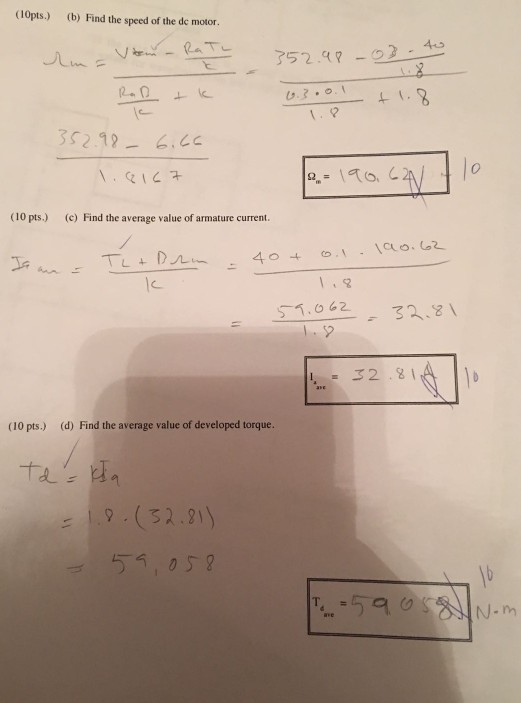 (10pts.) (b) Find the speed of the dc motor.
Ωm = (Vtav - RaTL/k) / (RaD/k + k) = (352.98 - 0.3 · 40/1.8) / (0.3 · 0.1/1.8 + 1.8)
352.98 - 6.66
1.8167
Ωm = 190.62
10
(10 pts.) (c) Find the average value of armature current.
Ia = TL + DΩm / k = 40 + 0.1 · 190.62 / 1.8
= 59.062 / 1.8 = 32.81
Iave = 32.81A
10
(10 pts.) (d) Find the average value of developed torque.
Td = kIa
= 1.8 · (32.81)
= 59,058
10
Tdave = 59.058 N-m